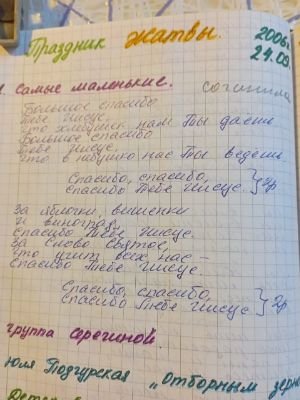 Праздник жатвы. 2006г
24.09
1. Самые маленькие. сочинила
Большое спасибо
Тебе Иисус,
что хлебушек нам Ты даешь
Большое спасибо
Тебе Иисус,
что в небушко нас Ты ведешь
Спасибо, спасибо,
спасибо Тебе Иисус } 2р
За яблочки, вишенки
и виноград,
спасибо Тебе Иисус.
За слово святое,
что учит всех нас –
спасибо Тебе Иисус.
Спасибо, спасибо,
спасибо Тебе Иисус } 2р
группа Серегиной
Юля Подгурская „Отборным зерн